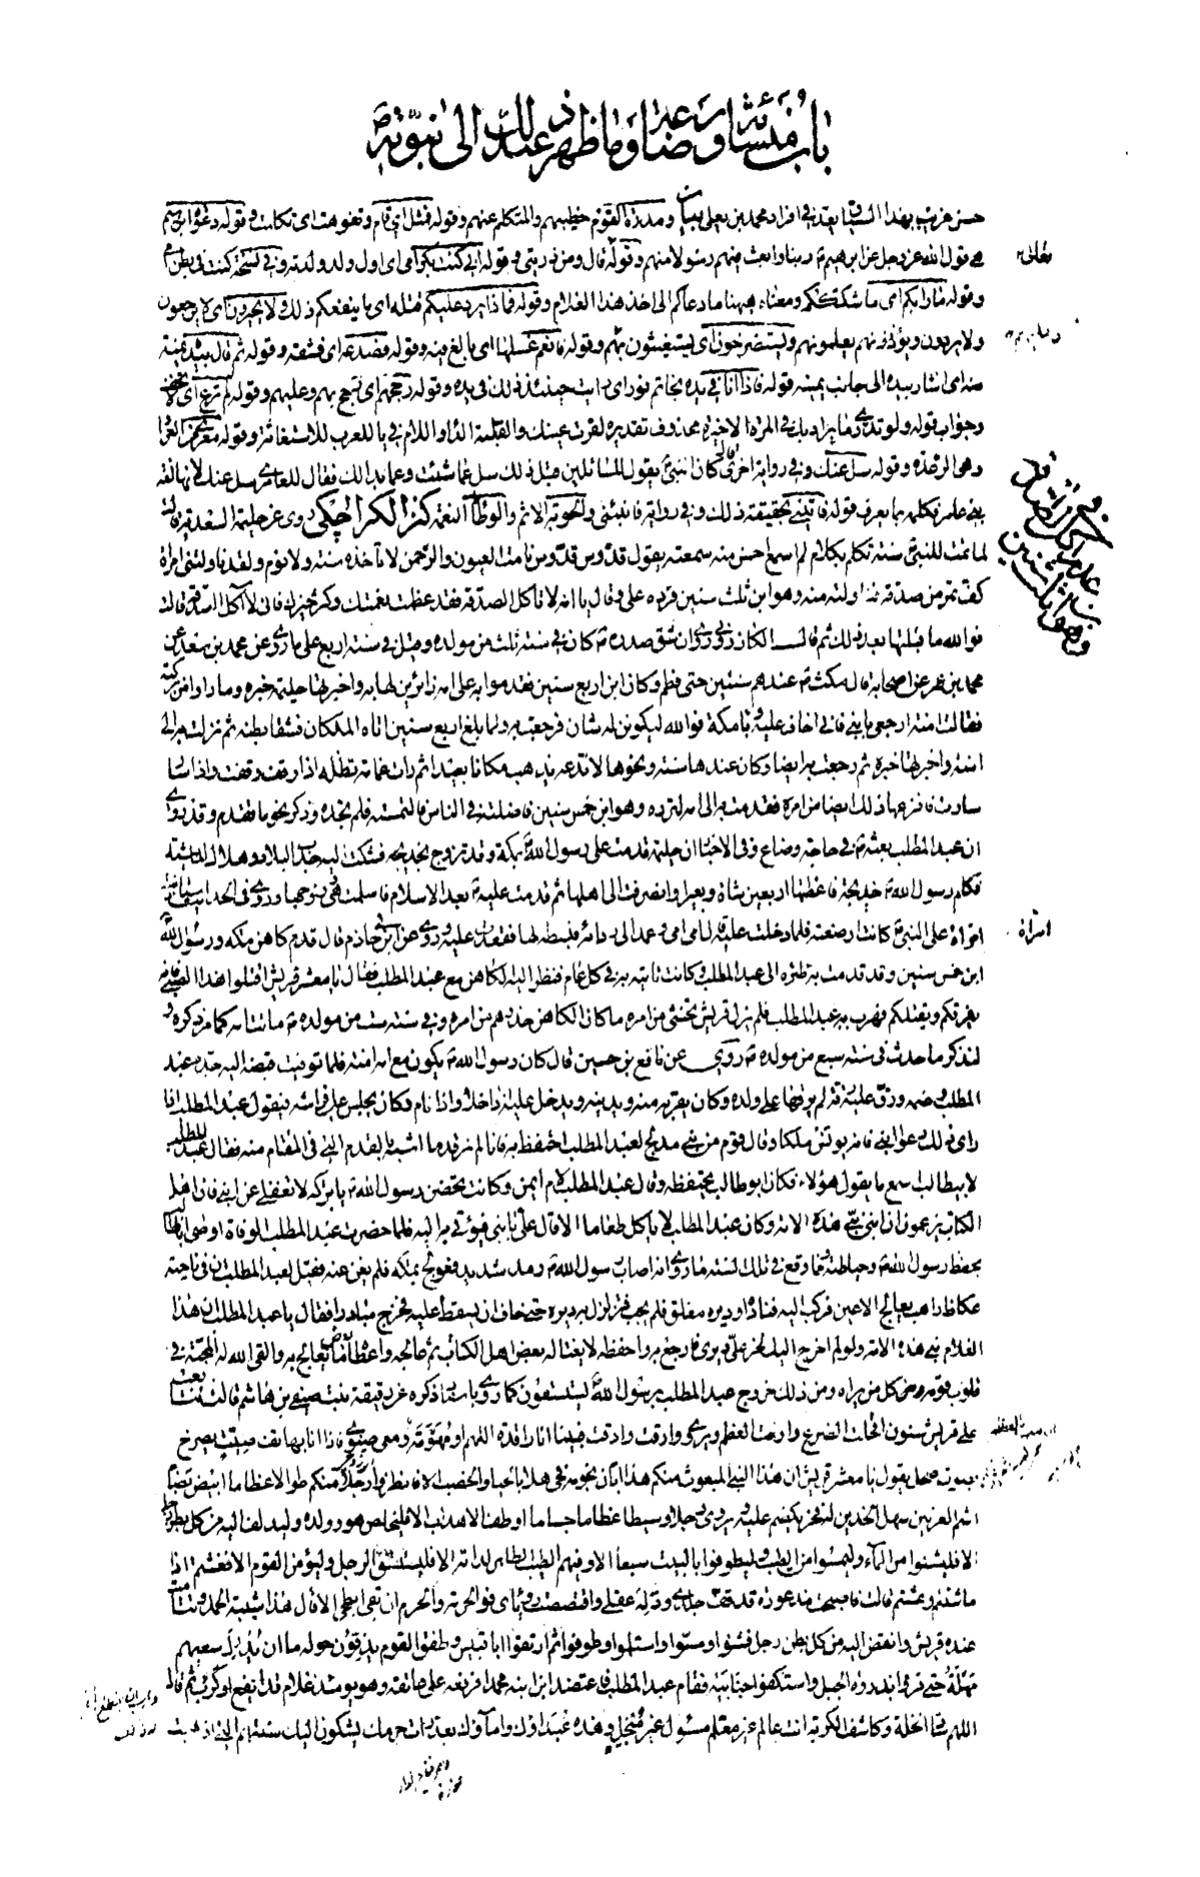 باب منشائه ورضاعه وما ظهر عند ذلك الى نبوته ص
حسن غريب بهذا السياق يعد في افراد محمد بن يعلى ومدرة القوم خطيبهم والمتكلم عنهم وقوله فمثل اي قام وتفوهت اي تكلمت وقوله دعوة ابراهيم
هي قول الله عز وجل عن ابرهيم ربنا وابعث فيهم رسولا منهم وقوله قال ومن ذريتي وقوله اني كنت بكر امي اي اول ولد ولدته وفي نسخة كنت في بطن امي
وقوله ما رابكم اي ما شككم ومعناه ههنا ما دعاكم الى اخذ هذا الغلام وقوله فماذا يرد عليكم قتله اي ما ينفعكم ذلك ولا يحيرون اي لا يرجعون
ولا يردون ويؤذنونهم يعلمونهم وليتصرخون اي يستغيثون بهم وقوله فانعم غسلها اي بالغ فيه وقوله وصدعه اي فشقه وقوله ثم قال بيده يمنة
منه اي اشار بيده الى جانب يمينه قوله فاذا انا في يده بخاتم نور اي رايت حينئذ ذلك في يده وقوله رجحهم اي رجح بهم وعليهم وقوله لم ترع اي لا تخف
وجواب قوله ولو تدري ما يراد بك في المرة الاخيرة محذوف تقديره لقرت عينك
وقوله سل عنك وفي رواية اخرى كان النبي يقول للسائلين قبل ذلك سل عما شئت وعما بدا لك فقال للعامري سل عنك لانها لغة
بني عامر فكلمه بما يعرف قوله فانبئني بحقيقة ذلك وفي رواية فانبئني والحوبة الاثم والوطأ النعمة كنز الكراجكي روى عن حليمة السعدية قالت
لما تمت للنبي سنة تكلم بكلام لم اسمع احسن منه سمعته يقول قدوس قدوس نامت العيون والرحمن لا تأخذه سنة ولا نوم ولقد ناولتني امراة
كف تمر من صدقة فناولته منه وهو ابن ثلث سنين فرده علي وقال يا امه لا تاكلي الصدقة فقد عظمت نعمتك وكثر خيرك فاني لا آكل الصدقة قالت
فوالله ما قبلتها بعد ذلك ثم قال الكازروني روي ان شق صدره ص كان في سنة ثلث من مولده وقيل في سنة اربع على ما روي عن محمد بن سعد عن
محمد بن عمر عن اصحابه قال مكث ص عندهم سنتين حتى فطم وكان ابن اربع سنين فقدموا به على امه زائرين لها به واخبرتها حليمة خبره وما راوا من بركته
فقالت امنة ارجعي بابني فاني اخاف عليه وباء مكة فوالله ليكونن له شان فرجعت به ولما بلغ اربع سنين اتاه الملكان فشقا بطنه ثم نزلت به الى
امنه واخبرتها خبره ثم رجعت به ايضا وكان عندها سنة ونحوها لا تدعه يذهب مكانا بعيدا ثم رات غمامة تظله اذا وقف وقفت واذا سار
سارت فافزعها ذلك ايضا من امره فقدمت به الى امه لترده وهو ابن خمس سنين فاضلته في الناس فالتمسته فلم تجده وذكر نحو ما تقدم وقد روي
ان عبد المطلب بعثه ص في حاجة وضاع وفي الاخبار ان حليمة قدمت على رسول الله ص مكة وقد تزوج بخديجة فشكت اليه جدب البلاد وهلاك الماشية
فكلم رسول الله ص خديجة فاعطتها اربعين شاة وبعيرا وانصرفت الى اهلها ثم قدمت عليه ص بعد الاسلام فاسلمت هي وزوجها وروي في الحديث استأذنت
امراة على النبي ص كانت ارضعته فلما دخلت عليه قال امي امي وعمد الى ردائه فبسطه لها فقعدت عليه وروي عن ابن ابي حازم قال قدم كاهن مكة ورسول الله ص
ابن خمس سنين وقد قدمت به ظئره الى عبد المطلب وكانت تاتيه به في كل عام فنظر اليه الكاهن مع عبد المطلب فقال يا معشر قريش اقتلوا هذا الصبي فانه
يفرقكم ويقتلكم فهرب به عبد المطلب فلم يزل قريش تخشى من امره ما كان الكاهن حذرهم من امره وفي سنة ست من مولده ص ماتت امه كما مر ذكره و
لنذكر ما حدث في سنة سبع من مولده ص روي عن نافع بن حسين قال كان رسول الله ص يكون مع امه امنة فلما توفيت قبضه اليه جده عبد
المطلب وضمه ورق عليه رقة لم يرقها على ولده وكان يقربه منه ويدنيه ويدخل عليه اذا خلا واذا نام وكان يجلس على فراشه فيقول عبد المطلب اذا
راى ذلك دعوا ابني فانه يؤنس ملكا وقال قوم من بني مدلج لعبد المطلب احتفظ به فانا لم نر قدما اشبه بالقدم التي في المقام منه فقال عبد المطلب
لابي طالب اسمع ما يقول هؤلاء فكان ابو طالب يحتفظه وقال عبد المطلب لام ايمن وكانت تحضن رسول الله ص يا بركة لا تغفلي عن ابني فان اهل
الكتاب يزعمون ان ابني نبي هذه الامة وكان عبد المطلب لا ياكل طعاما الا قال علي بابني فيؤتى به اليه فلما حضرت عبد المطلب الوفاة اوصى ابا طالب
بحفظ رسول الله ص وحياطته ومما وقع في تلك السنة ما روي انه اصاب رسول الله ص رمد شديد فعولج بمكة فلم يغن عنه فقيل لعبد المطلب ان في ناحية
عكاظ راهبا يعالج الاعين فركب اليه فناداه وديره مغلق فلم يجبه فتزلزل به ديره حتى خاف ان يسقط عليه فخرج مبادرا فقال يا عبد المطلب ان هذا
الغلام نبي هذه الامة ولو لم اخرج اليك لخر علي ديري فارجع به واحفظه لا يغتاله بعض اهل الكتاب ثم عالجه واعطاه ما يعالج به والقى الله له المحبة في
قلوب قومه وكل من يراه ومن ذلك خروج عبد المطلب برسول الله ص يستسقون كما روي باسناد ذكره عن رقيقة بنت صيفي بن هاشم قالت تتابعت
على قريش سنون اقحلت الضرع وارقت العظم فبينا انا راقدة اللهم او مهومة ومعي صنوي فاذا انا بهاتف صيت يصرخ
بصوت صحل يقول يا معشر قريش ان هذا النبي المبعوث منكم هذا ابان نجومه فحي هلا بالحيا والخصب الا فانظروا رجلا منكم طوالا عظاما ابيض بضا
اشم العرنين سهل الخدين له فخر يكظم عليه ويروى رجلا وسيطا عظاما جساما اوطف الاهداب الا فليخلص هو وولده وليدلف اليه من كل بطن رجل
الا فليشنوا من الماء وليمسوا من الطيب وليطوفوا بالبيت سبعا الا وفيهم الطيب الطاهر لداته الا فليستسق الرجل وليؤمن القوم الا فغثتم اذا
ما شئتم وعشتم قالت فاصبحت مذعورة قد قف جلدي ووله عقلي واقتصصت رؤياي فوالحرمة والحرم ان بقي ابطحي الا قال هذا شيبة الحمد وتتامت
عنده قريش وانقض اليه من كل بطن رجل فشنوا ومسوا واستلموا وطوفوا ثم ارتقوا ابا قبيس وطفق القوم يدفون حوله ما ان يدرك سعيهم
مهله حتى قروا بذروة الجبل واستكفوا جنابيه فقام عبد المطلب فاعتضد ابن ابنه محمدا فرفعه على عاتقه وهو يومئذ غلام قد ايفع او كرب ثم قال
اللهم ساد الخلة وكاشف الكربة انت عالم غير معلم مسئول غير مبخل وهذه عبداؤك واماؤك بعذرات حرمك يشكون اليك سنتهم التي اذهبت
تعالى
في علم الحل من الصدقة وهو ابن ثلث سنين
امراة